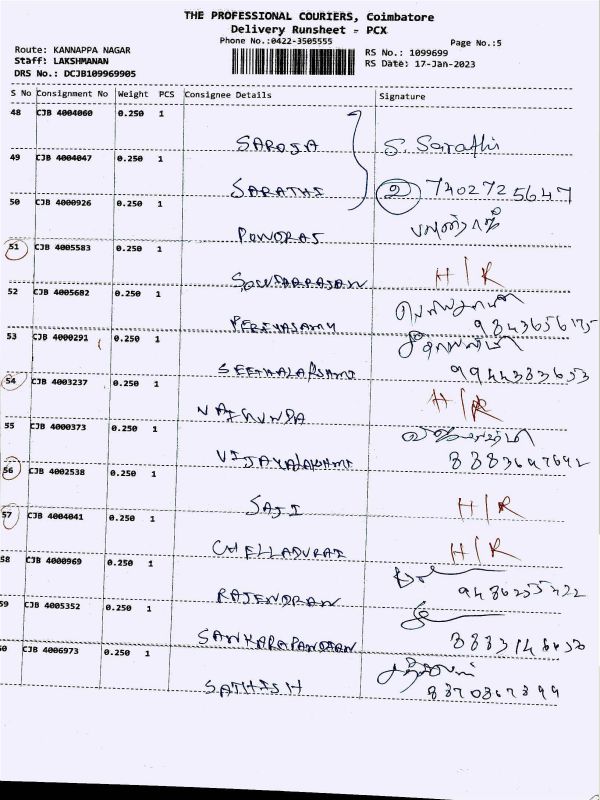 THE PROFESSIONAL COURIERS, Coimbatore
Delivery Runsheet - PCX
Phone No.:0422-3505555
Page No.:5
Route: KANNAPPA NAGAR
RS No.: 1099699
Staff: LAKSHMANAN
RS Date: 17-Jan-2023
DRS No.: DCJB109969905
S No Consignment No Weight PCS Consignee Details Signature
48 CJB 4004060 0.250 1
SAROJA S. Sarathi
49 CJB 4004047 0.250 1
SARATHI 2 7402725647
50 CJB 4000926 0.250 1
PONDRAJ பொன்ராஜ்
51 CJB 4005583 0.250 1
SOUNDARRAJAN H/R
52 CJB 4005682 0.250 1
PERIYASAMY பெரியசாமி
9843656175
53 CJB 4000291 0.250 1
SEETHALAKSHMI சீதாலட்சுமி
9944383653
54 CJB 4003237 0.250 1
VAIGUNDA H/R
55 CJB 4000373 0.250 1
VIJAYALAKSHMI விஜயலட்சுமி
56 CJB 4002538 0.250 1
SAJI H/R
57 CJB 4004041 0.250 1
CHELLADURAI H/R
58 CJB 4000969 0.250 1
RAJENDRAN
59 CJB 4005352 0.250 1
SANKARAPANDIAN
60 CJB 4006973 0.250 1
SATHISH